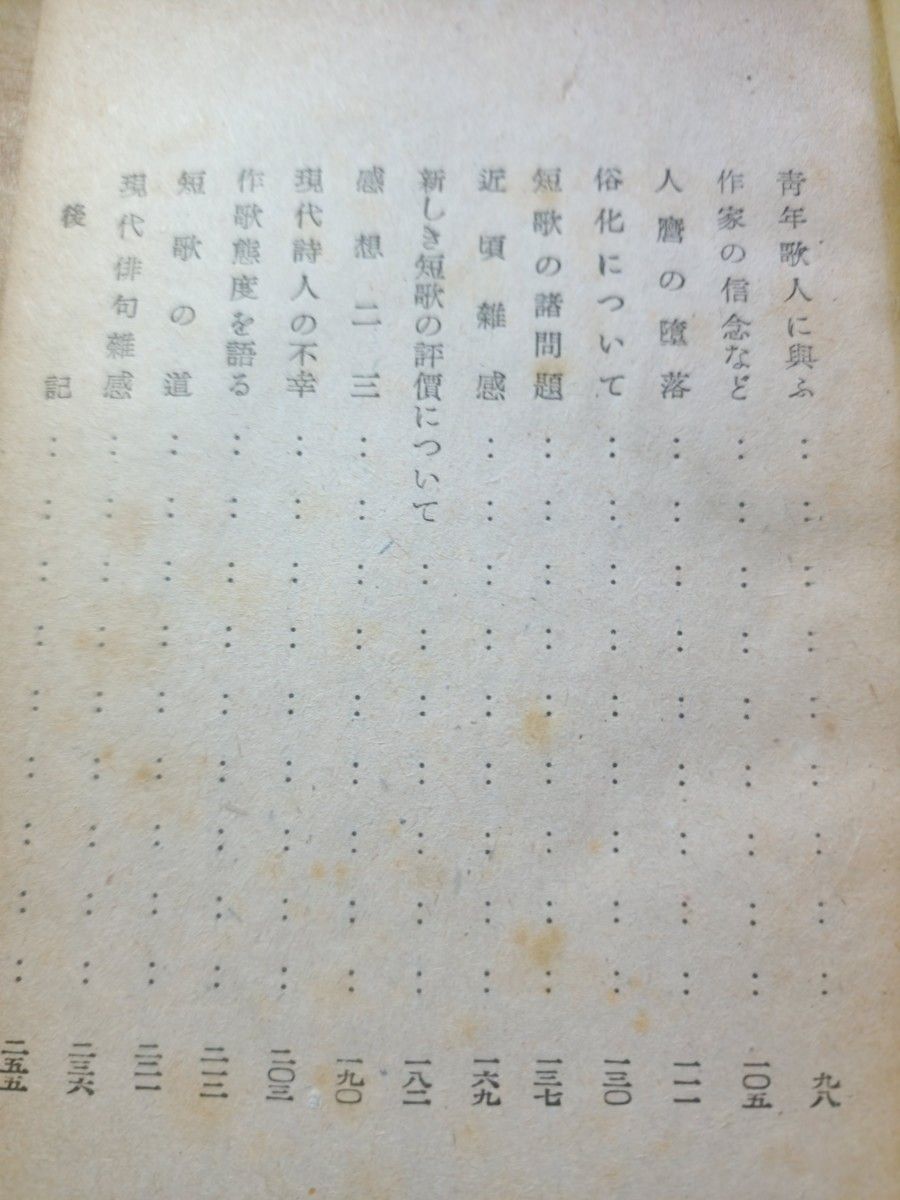 青年歌人に與ふ……………………九八
作家の信念など……………………一〇五
人麿の墮落……………………一一一
俗化について……………………一三〇
短歌の諸問題……………………一三七
近頃雜感……………………一六九
新しき短歌の評價について……………………一八二
感想二三……………………一九〇
現代詩人の不幸……………………二〇三
作歌態度を語る……………………二一二
短歌の道……………………二二一
現代俳句雜感……………………二三六
後記……………………二五五